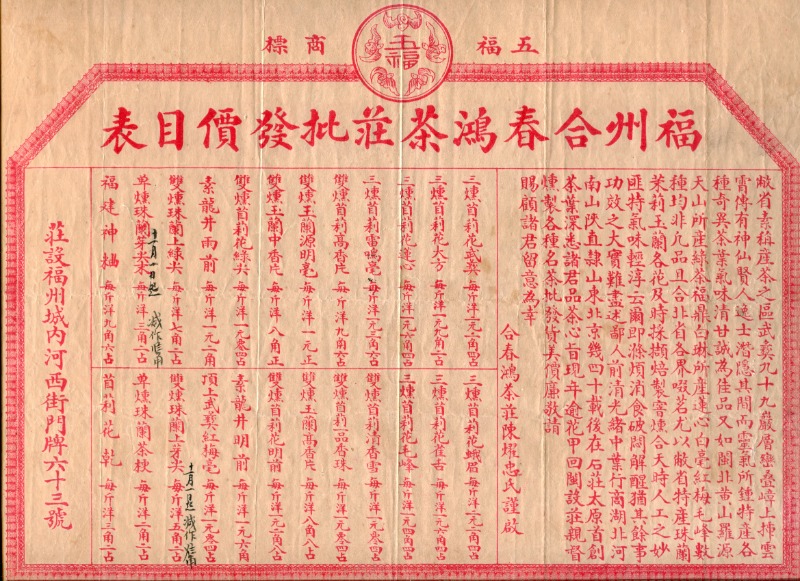 五福
商標
五福
福州合春鴻茶莊批發價目表
敝省素稱産茶之區武彝九十九巖層巒疊嶂上挿雲
霄傳有神仙賢人逸士潛隱其間而靈氣所鍾特産各
種奇異茶葉氣味清甘誠為佳品又如閩北黄山羅源
天山所産綠茶福鼎白琳所産蓮心白毫紅梅毛峰數
種均非凡品且合北省各界啜茗尤以敝省特産珠蘭
茉莉玉蘭各花及時採擷焙製窨燻合天時人工之妙
匪特氣味輕淳云爾即滌煩消食破悶解酲猶其餘事
功效之大實難盡述鄙人前清光緒中葉行商湖北河
南山陝直隸山東北京幾四十載後在石莊太原首創
茶葉深悉諸君品茶心旨現年逾花甲回閩設莊親督
燻製各種名茶批發貨美價廉敬請
賜顧諸君留意為幸
合春鴻茶莊陳耀忠氏謹啟
三燻首莉花武彝 每斤洋一元四角四占
三燻首莉花大方 每斤洋一元二角四占
三燻首莉花蓮心 每斤洋一元二角四占
三燻首莉雷鳴毫 每斤洋一元二角六占
雙燻首莉高香片 每斤洋九角六占
雙燻玉蘭源明毫 每斤洋一元正
雙燻玉蘭中香片 每斤洋八角正
雙燻首莉花綠尖 每斤洋一元零四占
素龍井雨前 每斤洋一元二角
雙燻珠蘭上綠尖 每斤洋七角二占
單燻珠蘭芽尖末 每斤洋三角二占
福建神麯 每斤洋九角六占
三燻首莉花蛾眉 每斤洋一元四角四占
三燻首莉花雀舌 每斤洋一元四角四占
三燻首莉花毛峰 每斤洋一元零四占
雙燻首莉清香雪 每斤洋一元零四占
雙燻首莉品香珠 每斤洋一元零四占
雙燻玉蘭高香片 每斤洋八角八占
雙燻首莉花明前 每斤洋一元二角八占
素龍井明前 每斤洋一元六角
頂上武彝紅梅毫 每斤洋一元零四占
雙燻珠蘭上芽尖 每斤洋五角二占
單燻珠蘭茶梗 每斤洋二角二占
首莉花乾 每斤洋三角二占
十二月一日起
減作
十二月一日起減作
莊設福州城內河西街門牌六十三號